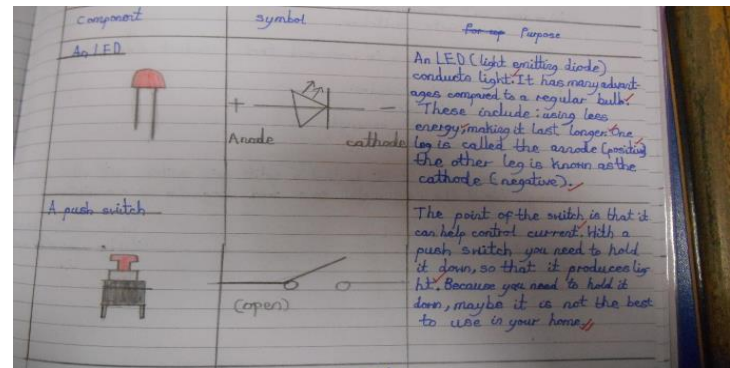 Component
symbol
Purpose
An LED
+
-
Anode
cathode
An LED (light emitting diode)
conducts light. It has many advant-
ages compared to a regular bulb.
These include: using less
energy, making it last longer. One
leg is called the annode (positive)
the other leg is known as the
cathode (negative).
A push switch
(open)
The point of the switch is that it
can help control current. With a
push switch you need to hold
it down, so that it produces lig
ht. Because you need to hold it
down, maybe it is not the best
to use in your home.